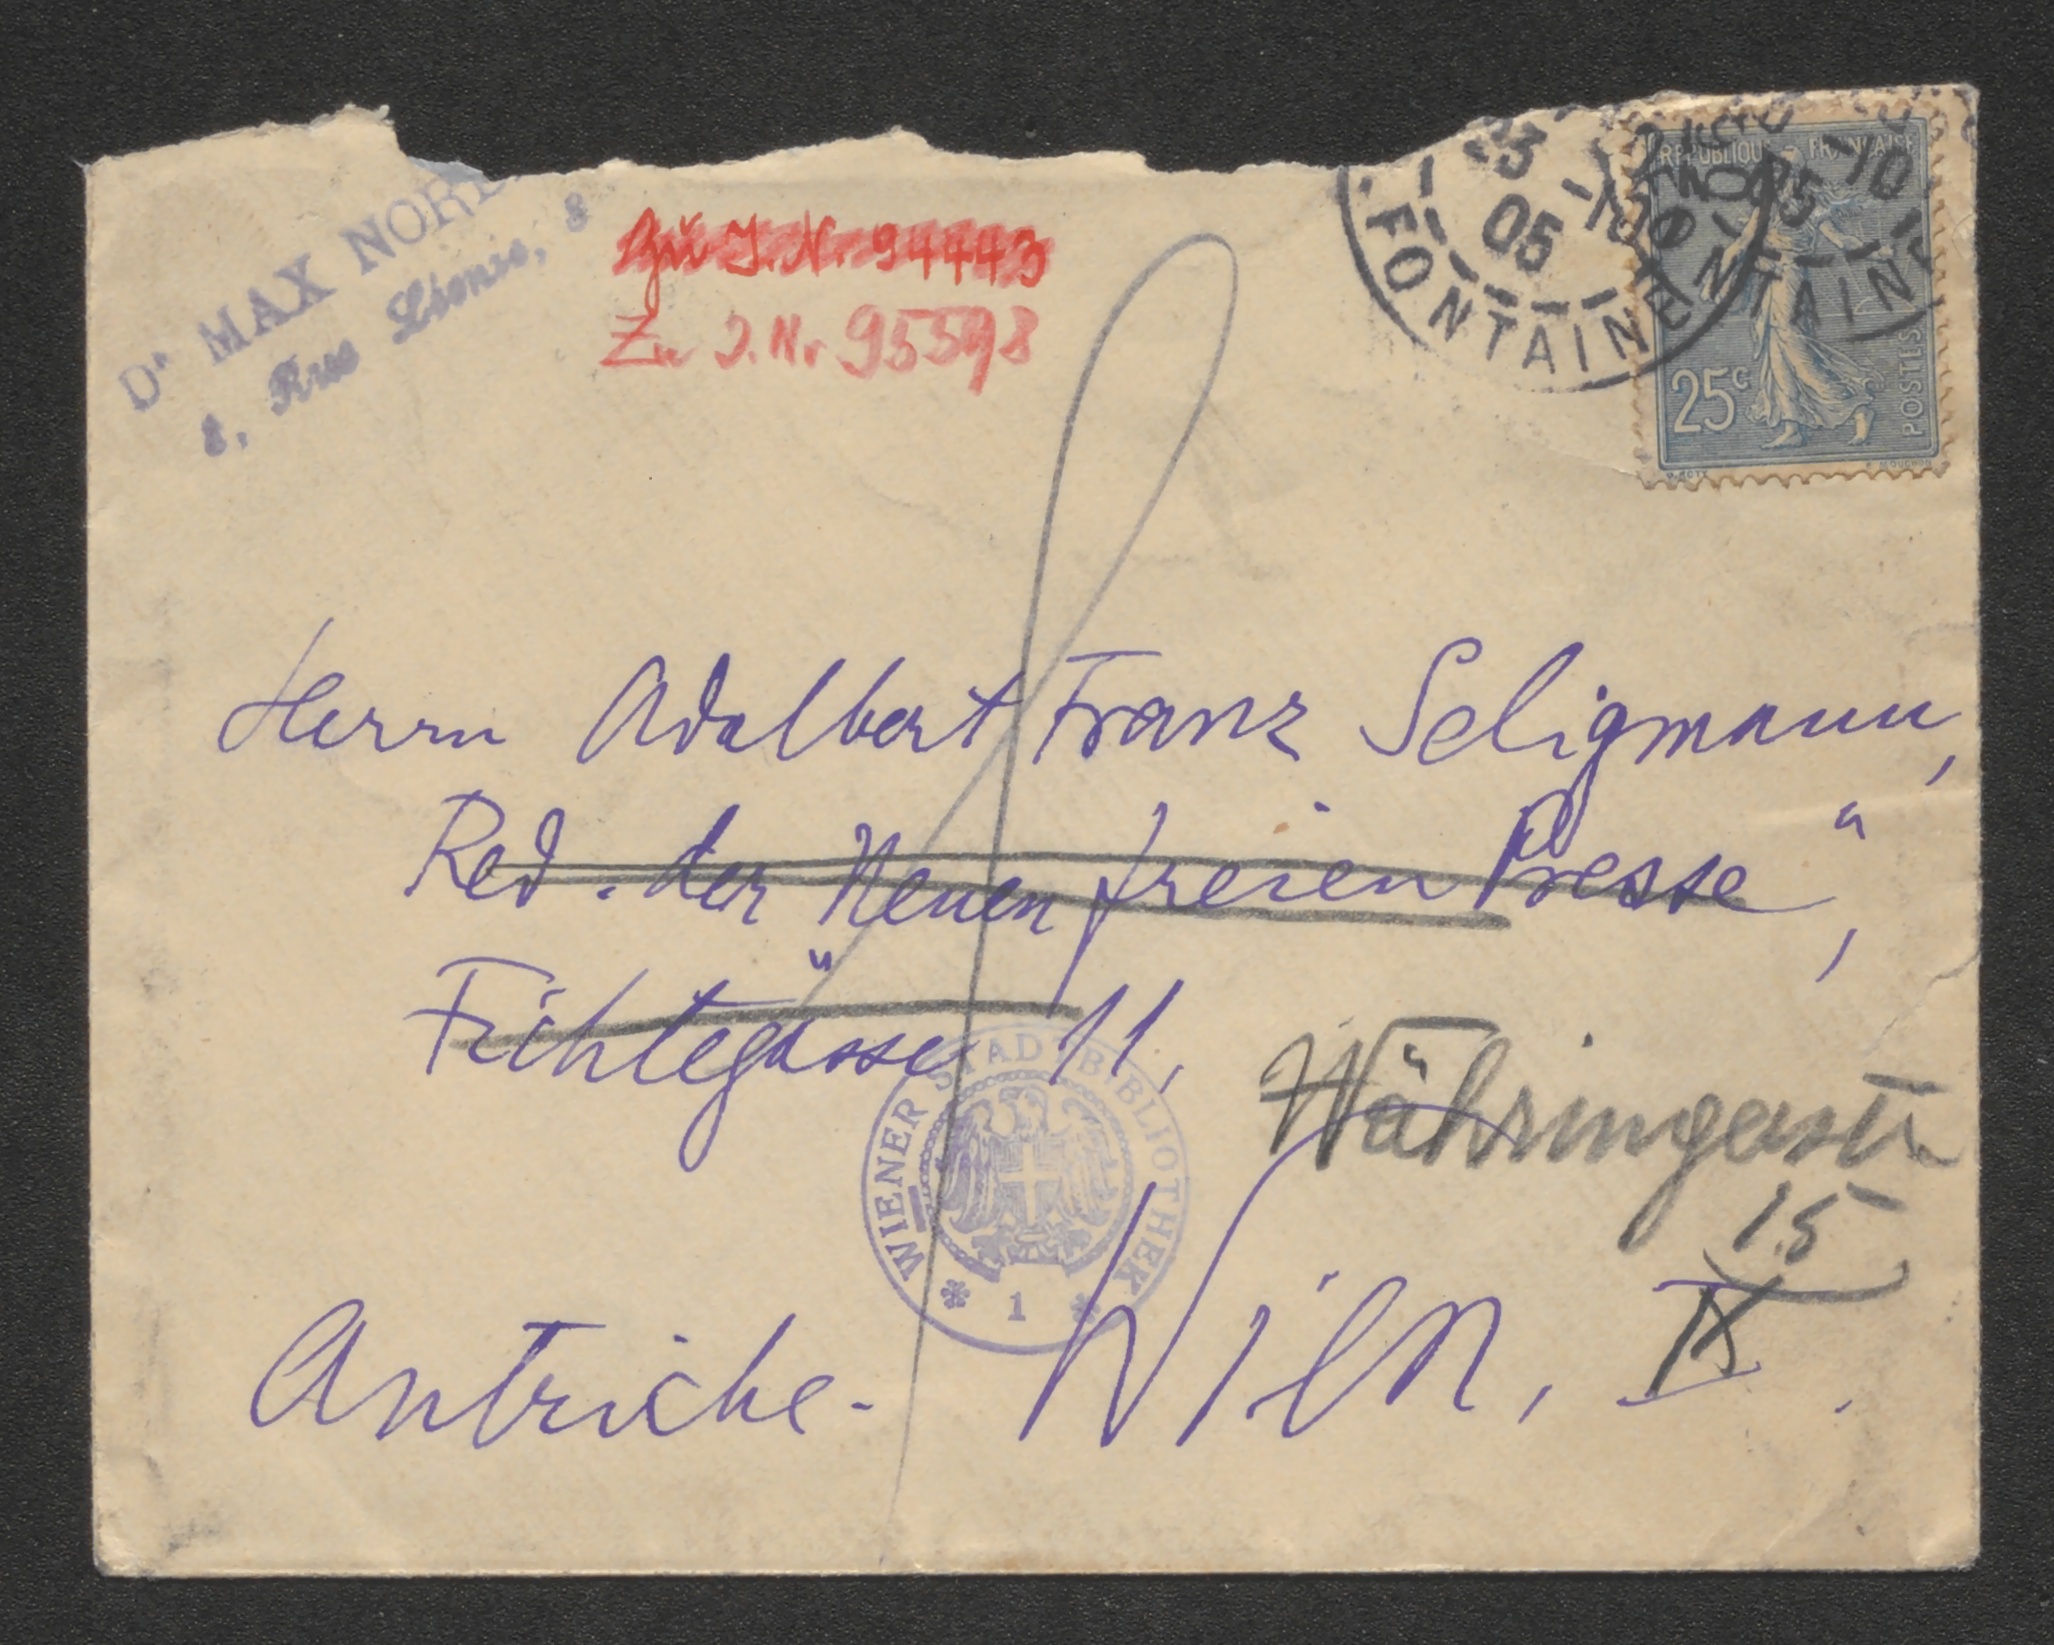 Dr MAX NORD
8, Rue Léonie, 8
Zu J. N. 94443
Zu J. N. 95598
FONTAINE
05
REPUBLIQUE FRANÇAISE
FONTAINE
25c
POSTES
Herrn Adalbert Franz Seligmann,
Red. der "Neuen freien Presse",
Fichtegasse 11,
Währingerstr.
15
WIENER STADTBIBLIOTHEK
1
Autriche. Wien, IX.